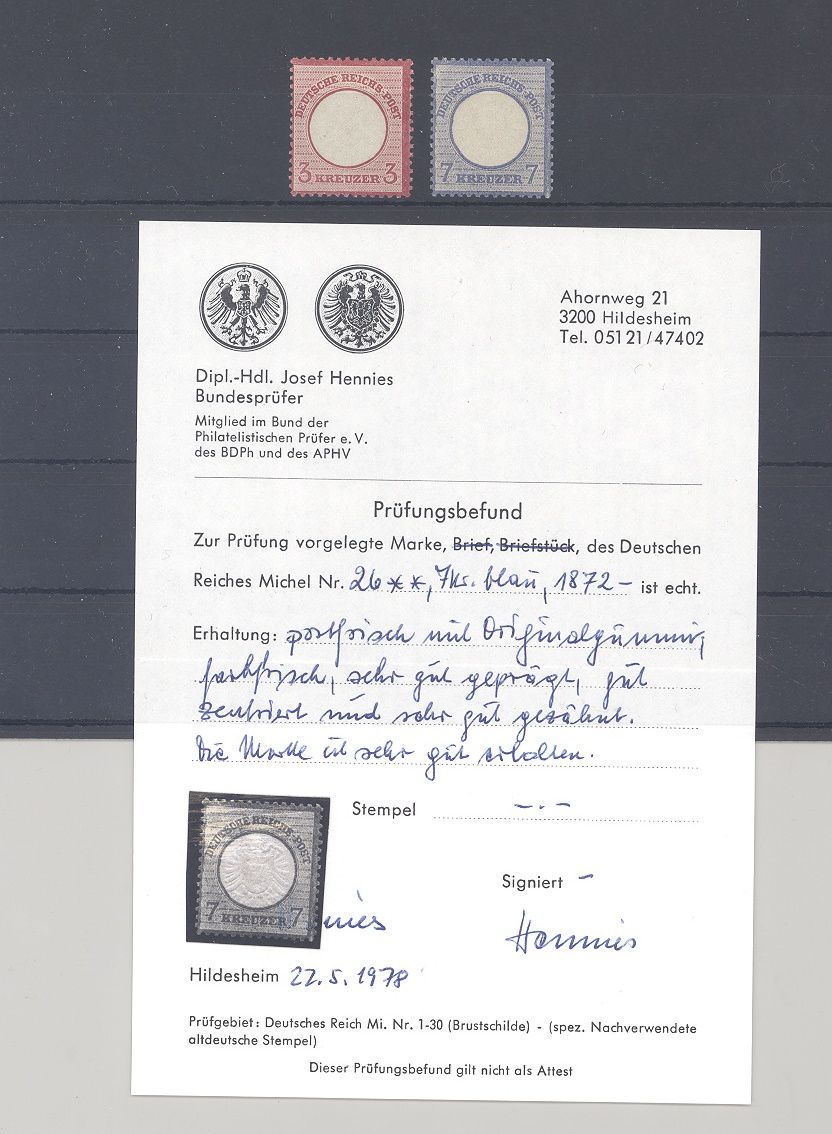 DEUTSCHE REICHS-POST
3 KREUZER 3
DEUTSCHE REICHS-POST
7 KREUZER 7
Ahornweg 21
3200 Hildesheim
Tel. 05121/47402
Dipl.-Hdl. Josef Hennies
Bundesprüfer
Mitglied im Bund der
Philatelistischen Prüfer e. V.
des BDPh und des APHV
Prüfungsbefund
Zur Prüfung vorgelegte Marke, Brief, Briefstück, des Deutschen
Reiches Michel Nr. 26 **, 7 Kr. blau, 1872 – ist echt.
Erhaltung: postfrisch mit Originalgummi,
farbfrisch, sehr gut geprägt, gut
zentriert und sehr gut gezähnt.
Die Marke ist sehr gut erhalten.
Stempel –.–
DEUTSCHE REICHS-POST
7 KREUZER 7
Signiert –
nies
Hennies
Hildesheim 22.5.1978
Prüfgebiet: Deutsches Reich Mi. Nr. 1-30 (Brustschilde) - (spez. Nachverwendete
altdeutsche Stempel)
Dieser Prüfungsbefund gilt nicht als Attest